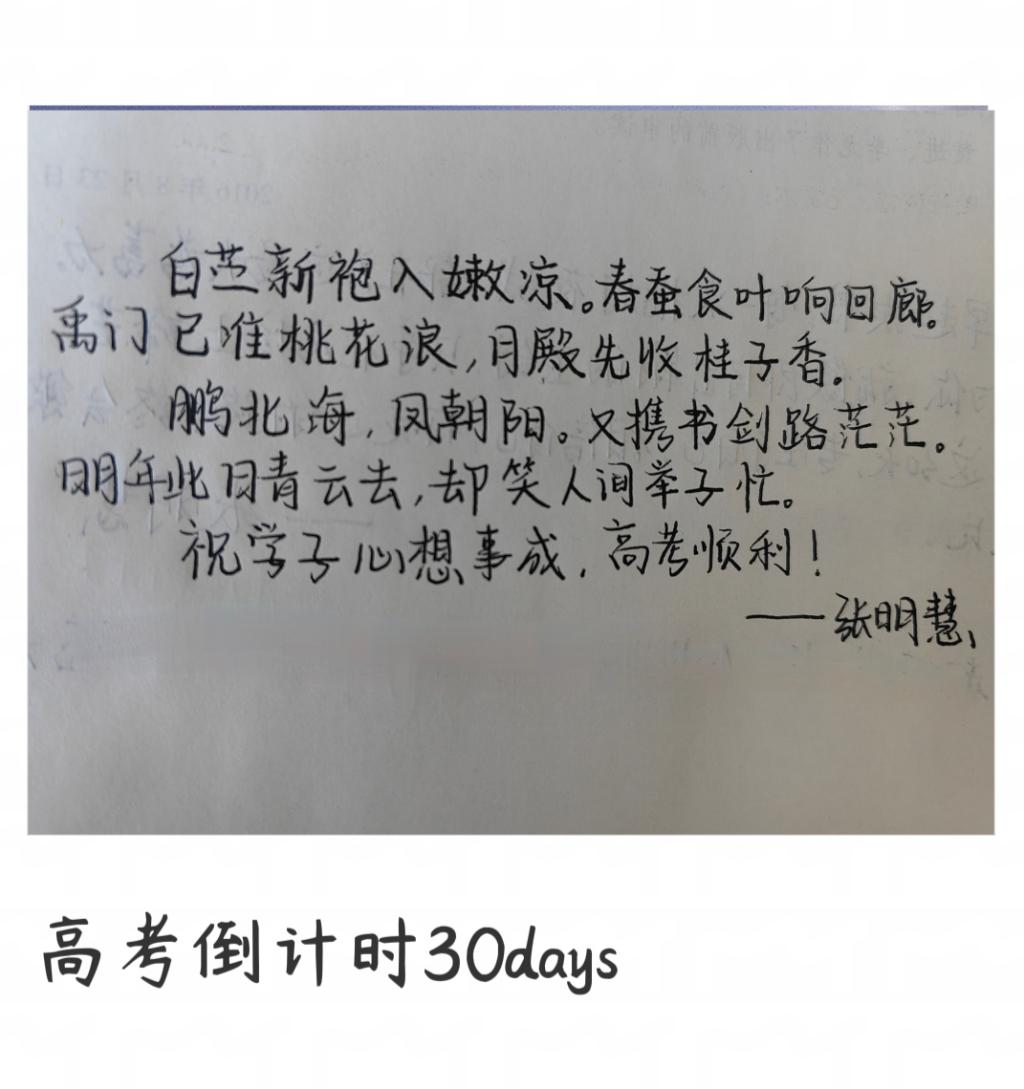 白苎新袍入嫩凉。春蚕食叶响回廊。
禹门已准桃花浪,月殿先收桂子香。
鹏北海,凤朝阳。又携书剑路茫茫。
明年此日青云去,却笑人间举子忙。
祝学子心想事成,高考顺利!
——张明慧
高考倒计时30days